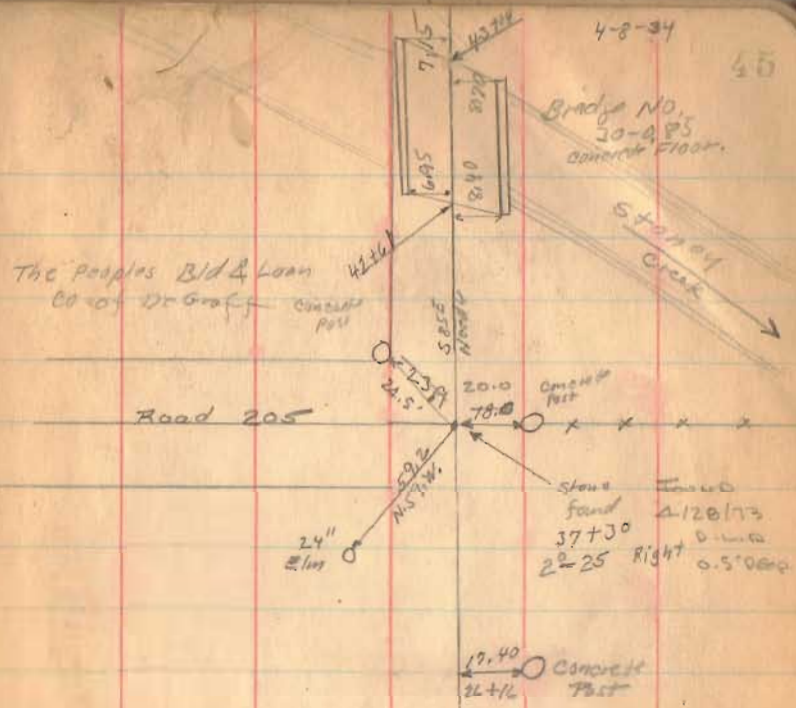 4-8-34
45
43+14
7.15
8.20
Bridge No.
30-0.85
Concrete Floor.
6.95
8.40
Stoney
Creek
42+61
The Peoples Bld & Loan
Co of DeGraff
Concrete
Post
S85E
24.5'
20.0
78.0
Concrete
Post
Road 205
59.2
N.59.W.
24"
Elm
Stone
found
37+30
2°-25 Right
Found
4/28/73
0.5' Deep
17.40
26+16
Concrete
Post